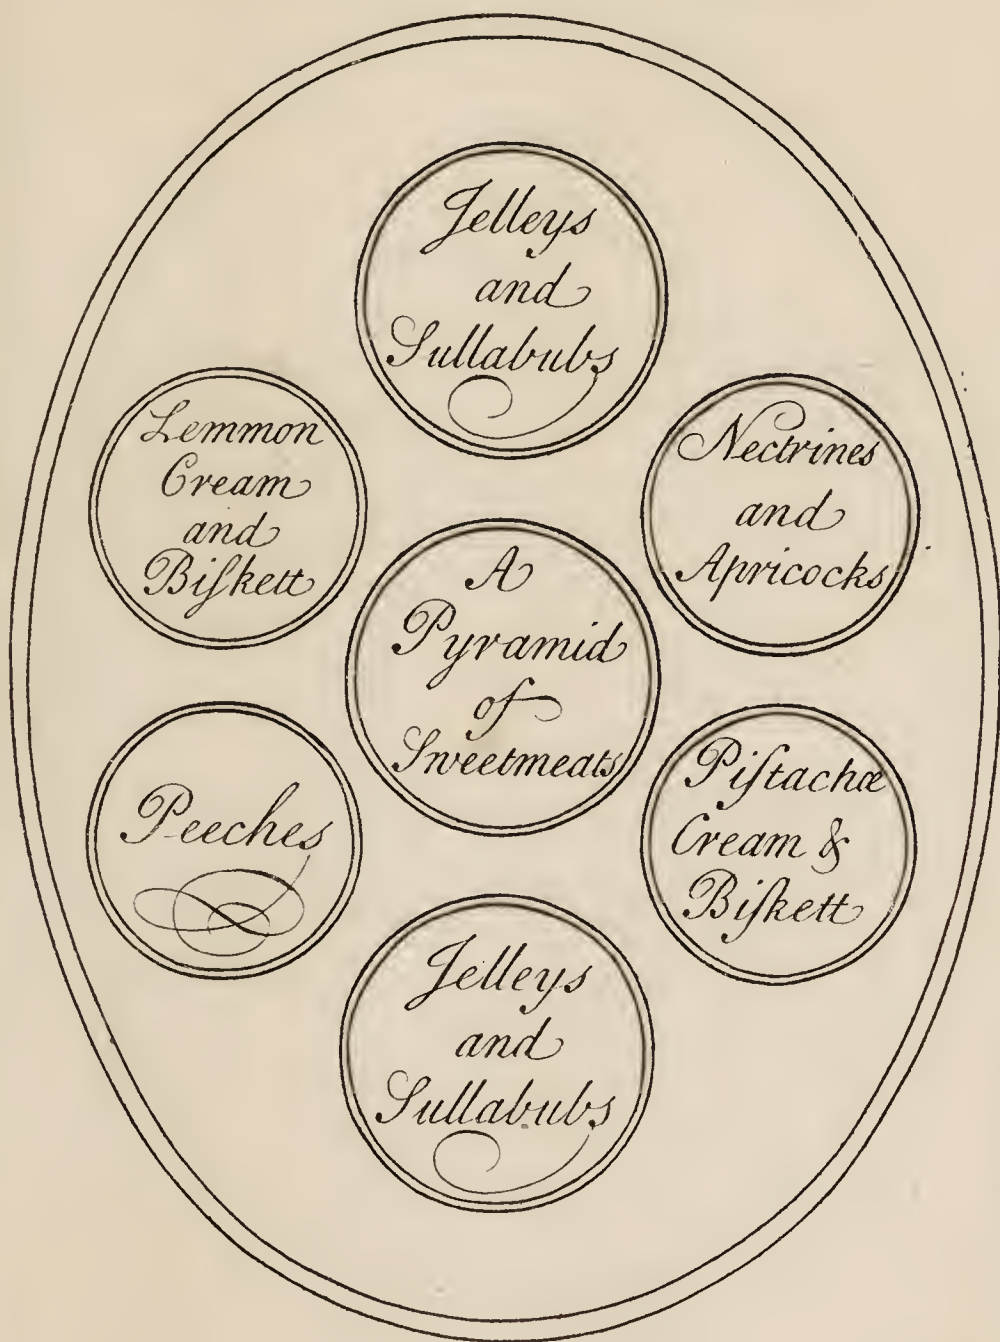 Jelleys
and
Sullabubs
Lemmon
Cream
and
Biſkett
Nectrines
and
Apricocks
A
Pyramid
of
Sweetmeats
Peeches
Piſtachœ
Cream &
Biſkett
Jelleys
and
Sullabubs